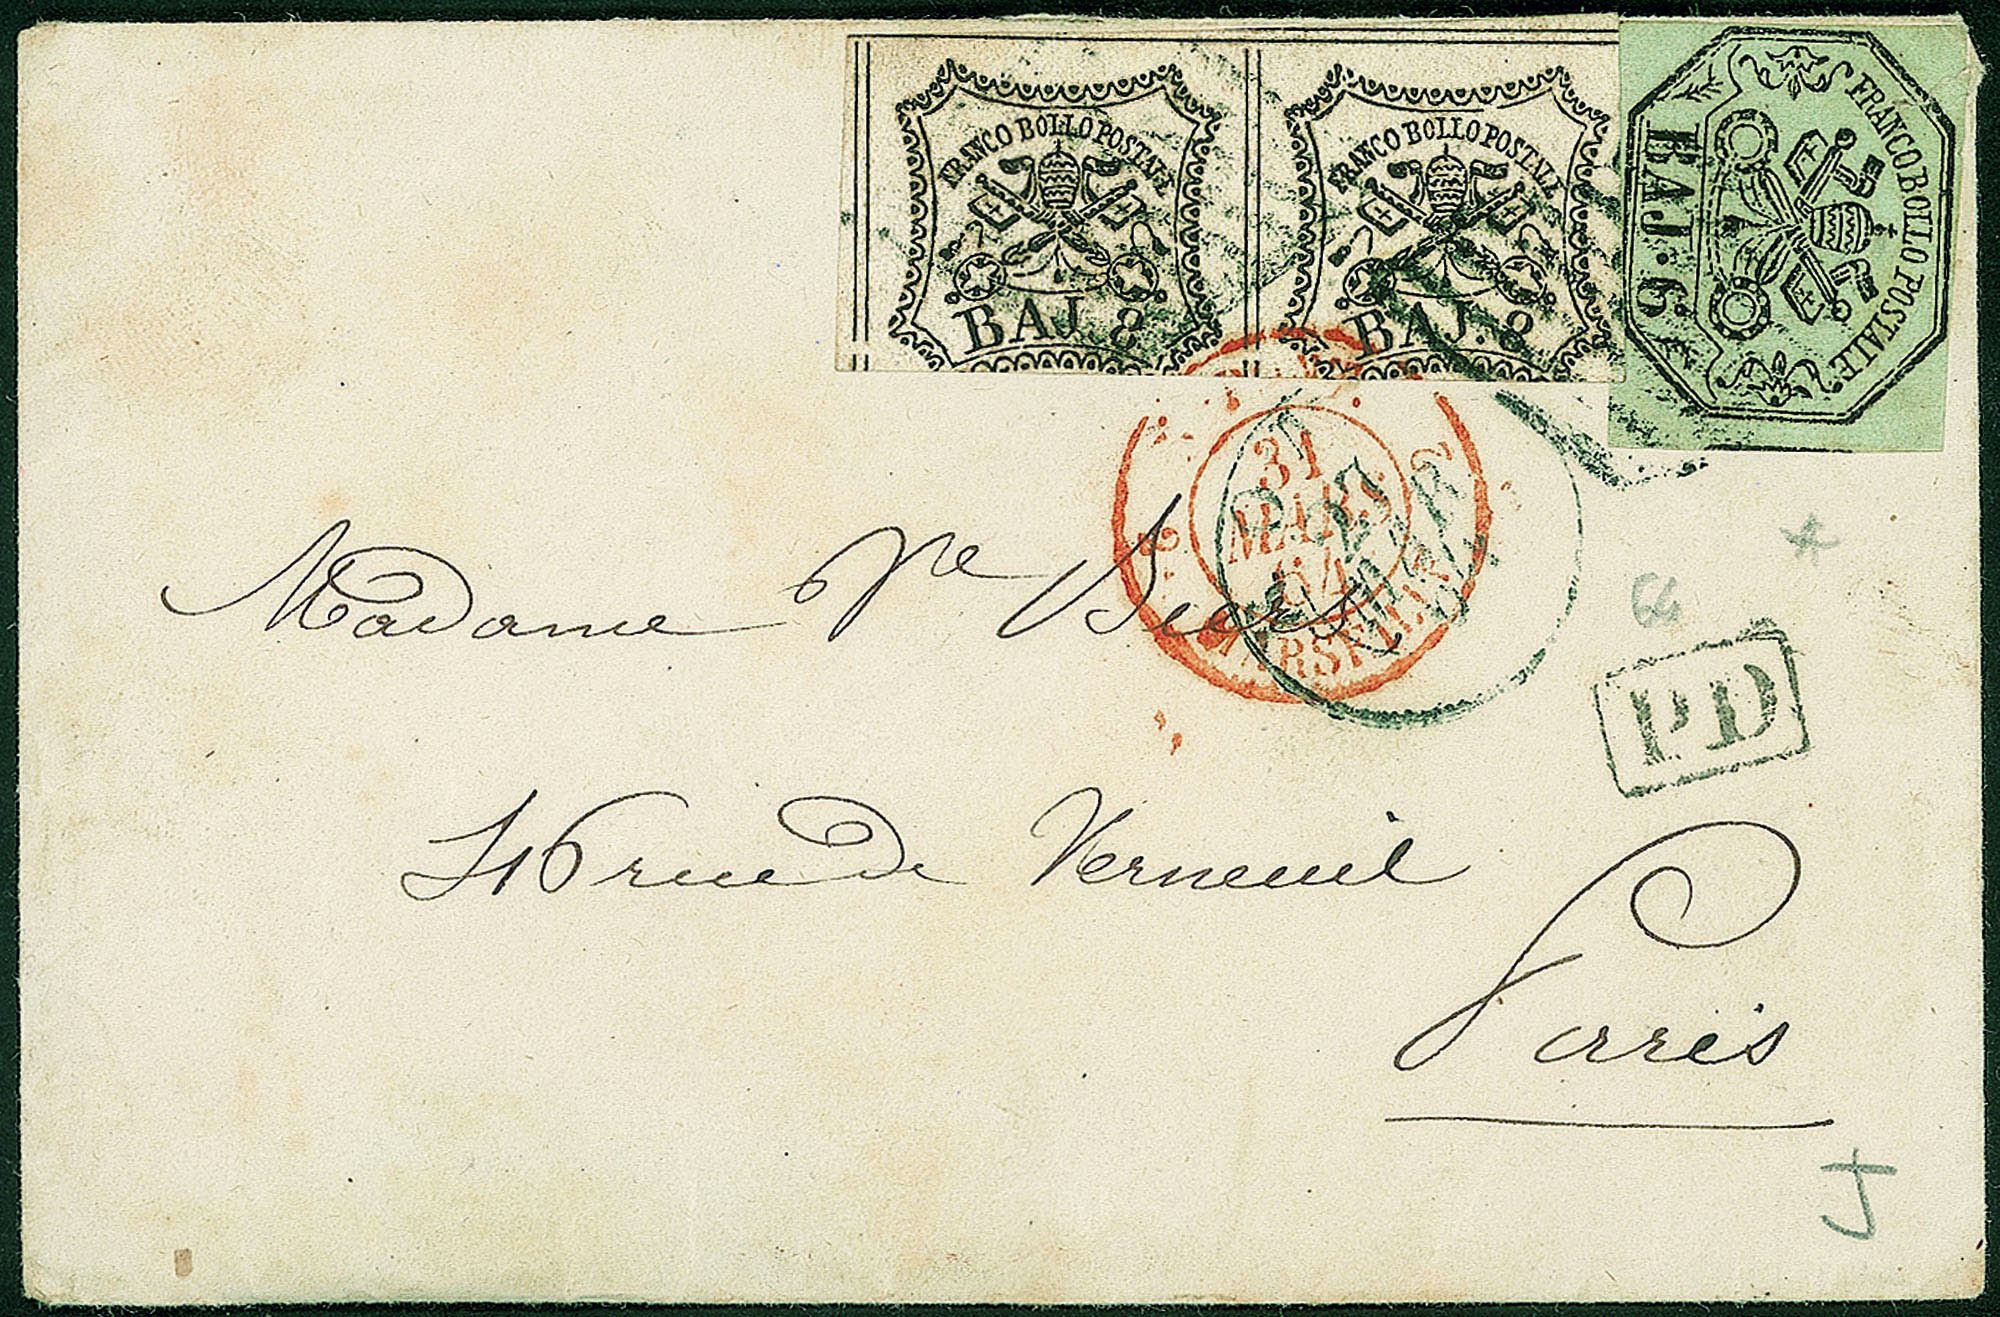 FRANCO BOLLO POSTALE
BAJ. 8
FRANCO BOLLO POSTALE
BAJ. 8
FRANCO BOLLO POSTALE
BAJ. 6
31
MARS
64
MARSEILLE
Madame Ve
64
P.D
rue de Verneuil
Paris